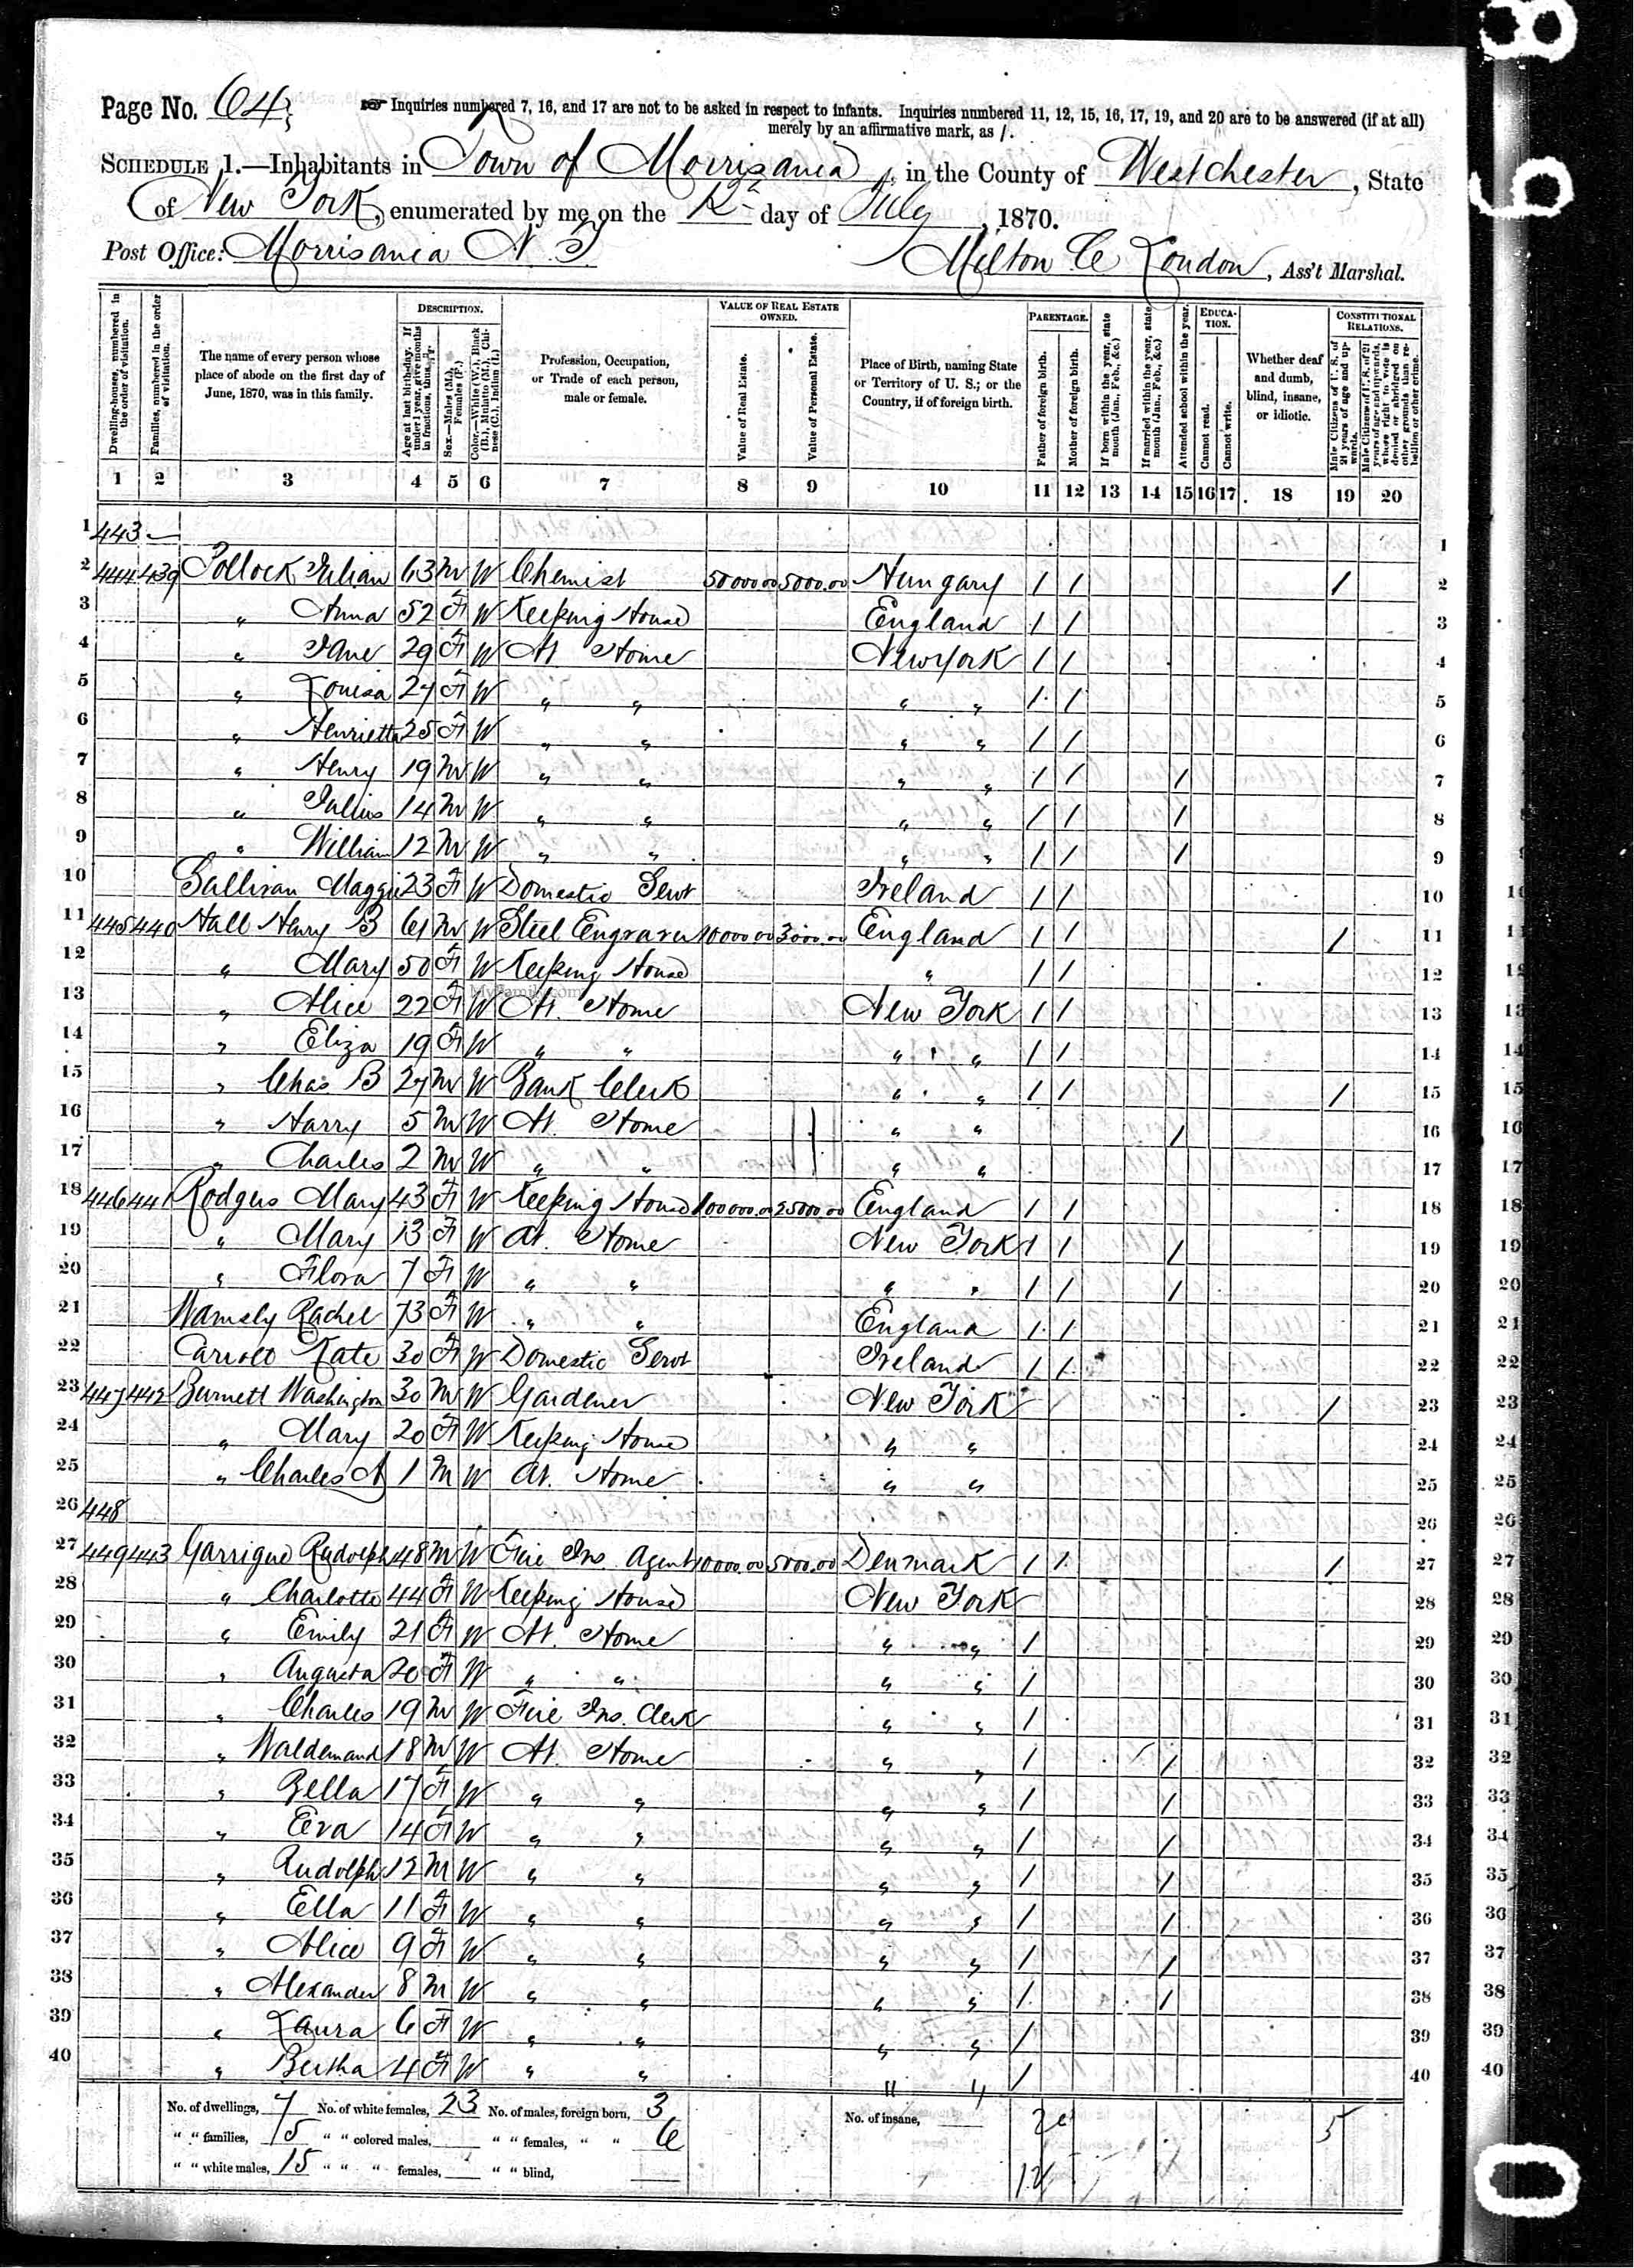 Page No. 64
☞ Inquiries numbered 7, 16, and 17 are not to be asked in respect to infants. Inquiries numbered 11, 12, 15, 16, 17, 19, and 20 are to be answered (if at all)
merely by an affirmative mark, as /.
SCHEDULE 1.—Inhabitants in Town of Morrisania, in the County of Westchester, State
of New York, enumerated by me on the 12 day of July, 1870.
Post Office: Morrisania N. Y.
Milton C London, Ass't Marshal.
Dwelling-houses, numbered in the order of visitation.
Families, numbered in the order of visitation.
The name of every person whose place of abode on the first day of June, 1870, was in this family.
DESCRIPTION.
Age at last birth-day. If under 1 year, give months in fractions, thus,
Sex.—Males (M.), Females (F.)
Color.—White (W.), Black (B.), Mulatto (M.), Chinese (C.), Indian (I.)
Profession, Occupation, or Trade of each person, male or female.
VALUE OF REAL ESTATE OWNED.
Value of Real Estate.
Value of Personal Estate.
Place of Birth, naming State or Territory of U. S.; or the Country, if of foreign birth.
PARENTAGE.
Father of foreign birth.
Mother of foreign birth.
If born within the year, state month (Jan., Feb., &c.)
If married within the year, state month (Jan., Feb., &c.)
Attended school within the year.
EDUCATION.
Cannot read.
Cannot write.
Whether deaf and dumb, blind, insane, or idiotic.
CONSTITUTIONAL RELATIONS.
Male Citizens of U. S. of 21 years of age and upwards.
Male Citizens of U. S. of 21 years of age and upwards, whose right to vote is denied or abridged on other grounds than rebellion or other crime.
1 2 3 4 5 6 7 8 9 10 11 12 13 14 15 16 17 18 19 20
1 443 — 1
2 444 439 Pollock Julian 63 M W Chemist 50000.00 5000.00 Hungary / / / 2
3 " Anna 52 F W Keeping House England / / 3
4 " Jane 29 F W At Home New York / / 4
5 " Louisa 27 F W " " " " / / 5
6 " Henrietta 25 F W " " " " / / 6
7 " Henry 19 M W " " " " / / / 7
8 " Julius 14 M W " " " " / / / 8
9 " William 12 M W " " " " / / / 9
10 Sullivan Maggie 23 F W Domestic Servt Ireland / / 10
11 445 440 Hall Henry B 61 M W Steel Engraver 10000.00 3000.00 England / / / 11
12 " Mary 50 F W Keeping House " / / 12
MyFamily.com
13 " Alice 22 F W At Home New York / / 13
14 " Eliza 19 F W " " " " / / 14
15 " Chas B 27 M W Bank Clerk " " / / / 15
16 " Harry 5 M W At Home " " / 16
17 " Charles 2 M W " " " " 17
18 446 441 Rodgers Mary 43 F W Keeping House 100000.00 25000.00 England / / 18
19 " Mary 13 F W At Home New York / / / 19
20 " Flora 7 F W " " " " / / / 20
21 Wamsly Rachel 73 F W " " England / / 21
22 Carroll Kate 30 F W Domestic Servt Ireland / / 22
23 447 442 Burnett Washington 30 M W Gardener New York / 23
24 " Mary 20 F W Keeping House " " 24
25 " Charles A 1 M W At Home " " 25
26 448 26
27 449 443 Garrigue Rudolph 48 M W Fire Ins. Agent 10000.00 5000.00 Denmark / / / 27
28 " Charlotte 44 F W Keeping House New York 28
29 " Emily 21 F W At Home " " / 29
30 " Augusta 20 F W " " " " / 30
31 " Charles 19 M W Fire Ins. Clerk " " / 31
32 " Waldemand 18 M W At Home " " / / 32
33 " Bella 17 F W " " " " / / 33
34 " Eva 14 F W " " " " / / 34
35 " Rudolph 12 M W " " " " / / 35
36 " Ella 11 F W " " " " / / 36
37 " Alice 9 F W " " " " / / 37
38 " Alexander 8 M W " " " " / / 38
39 " Laura 6 F W " " " " / 39
40 " Bertha 4 F W " " " " / 40
No. of dwellings, 7 No. of white females, 23 No. of males, foreign born, 3 No. of insane, 5
" " families, 5 " " colored males, " " females, " " 6
" " white males, 15 " " " females, " " blind,